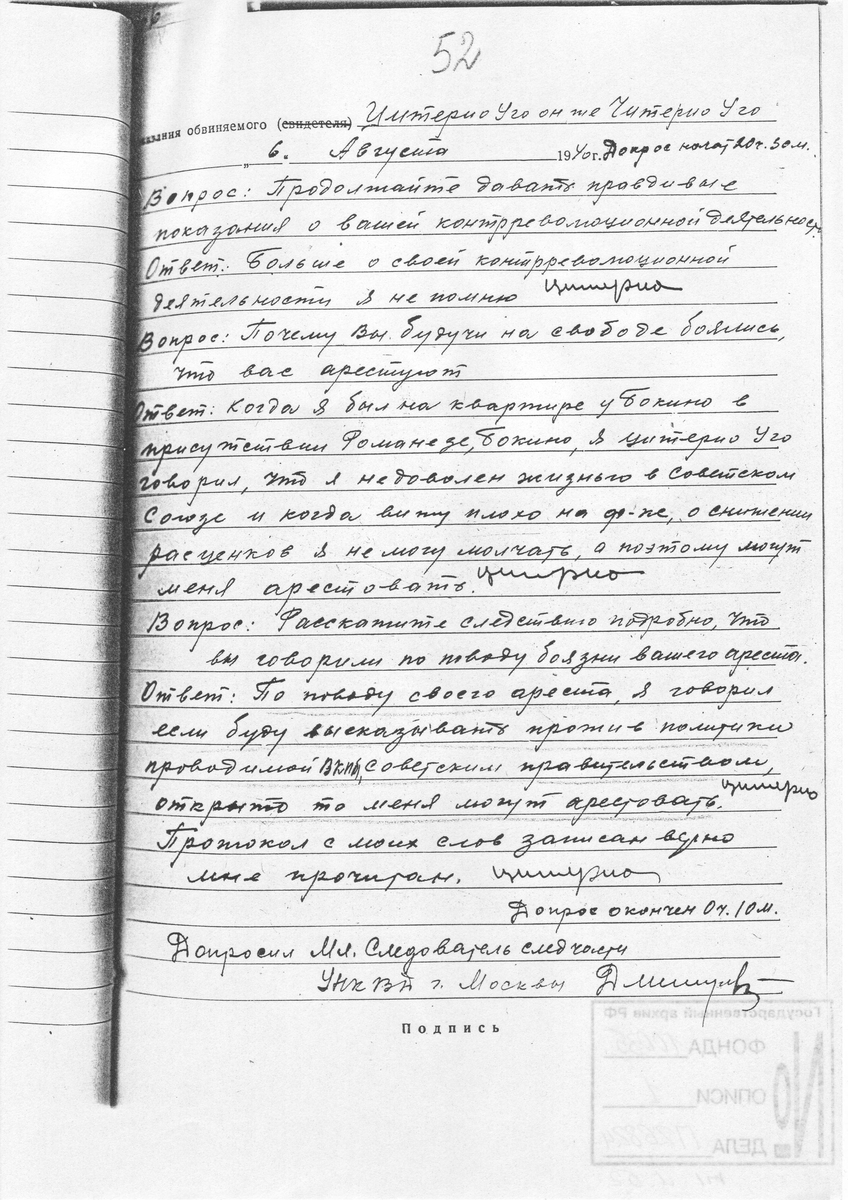 52
ния обвиняемого (свидетеля) Цитерио Уго он же Читерио Уго
„ 6. Августа 1940г. Допрос начат 20ч. 30м.
Вопрос: Продолжайте давать правдивые
показания о вашей контрреволюционной деятельности
Ответ: Больше о своей контрреволюционной
деятельности я не помню Цитерио
Вопрос: Почему Вы будучи на свободе боялись,
что вас арестуют
Ответ: Когда я был на квартире у Бокино в
присутствии Романезе, Бокино, я Цитерио Уго
говорил, что я недоволен жизнью в Советском
Союзе и когда вижу плохо на ф-ке, о снижении
расценков я не могу молчать, а поэтому могут
меня арестовать. Цитерио
Вопрос: Расскажите следствию подробно, что
вы говорили по поводу боязни вашего ареста.
Ответ: По поводу своего ареста, я говорил
если буду высказывать против политики
проводимой ВКП(б), Советским правительством,
открыто то меня могут арестовать. Цитерио
Протокол с моих слов записан верно
мне прочитан. Цитерио
Допрос окончен 0ч. 10м.
Допросил Мл. Следователь следчасти
УНКВД г. Москвы
Подпись
Государственный архив РФ
ФОНДА
ОПИСИ 1
ДЕЛА